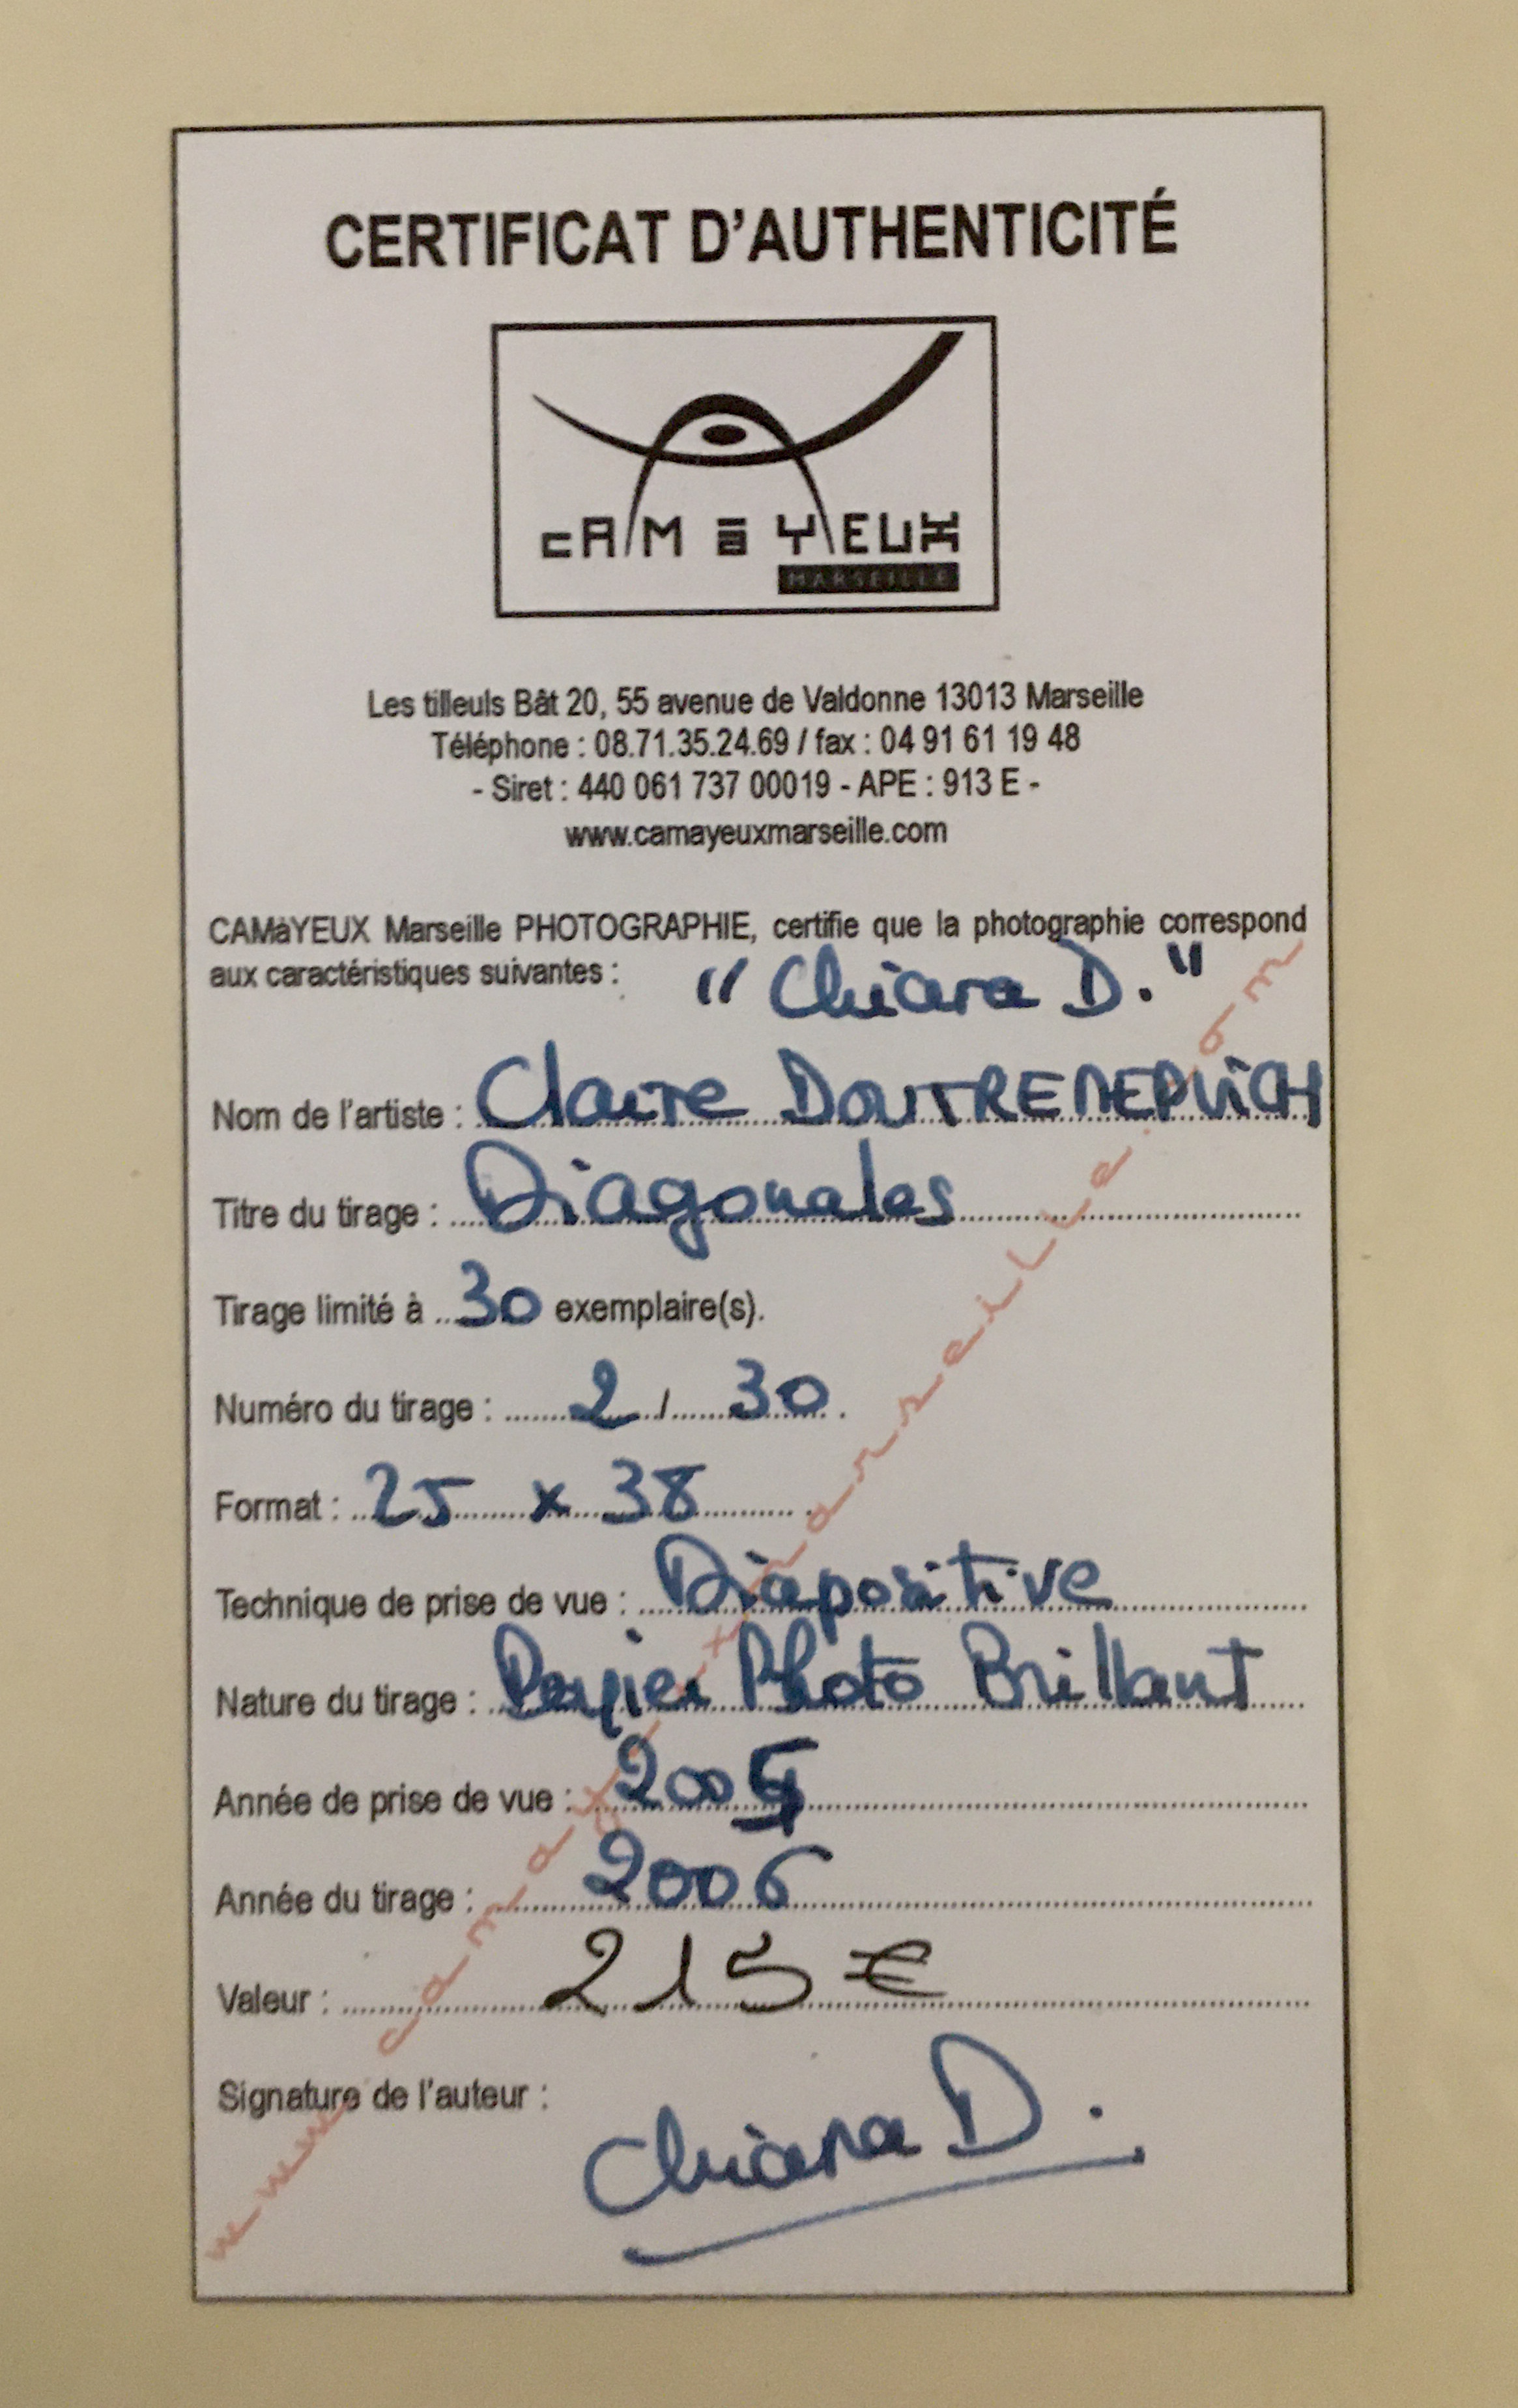 CERTIFICAT D'AUTHENTICITÉ
CAMàYEUX
MARSEILLE
Les tilleuls Bât 20, 55 avenue de Valdonne 13013 Marseille
Téléphone : 08.71.35.24.69 / fax : 04 91 61 19 48
- Siret : 440 061 737 00019 - APE : 913 E -
www.camayeuxmarseille.com
CAMàYEUX Marseille PHOTOGRAPHIE, certifie que la photographie correspond
aux caractéristiques suivantes : "Chiara D."
Nom de l'artiste : Claire
Titre du tirage : Diagonales
Tirage limité à 30 exemplaire(s).
Numéro du tirage : 2 / 30.
Format : 25 x 38
Technique de prise de vue : Diapositive
Nature du tirage : Papier Photo Brillant
Année de prise de vue :
Année du tirage : 2006
Valeur : 215 €
Signature de l'auteur :
Chiara D.
www.camayeuxmarseille.com